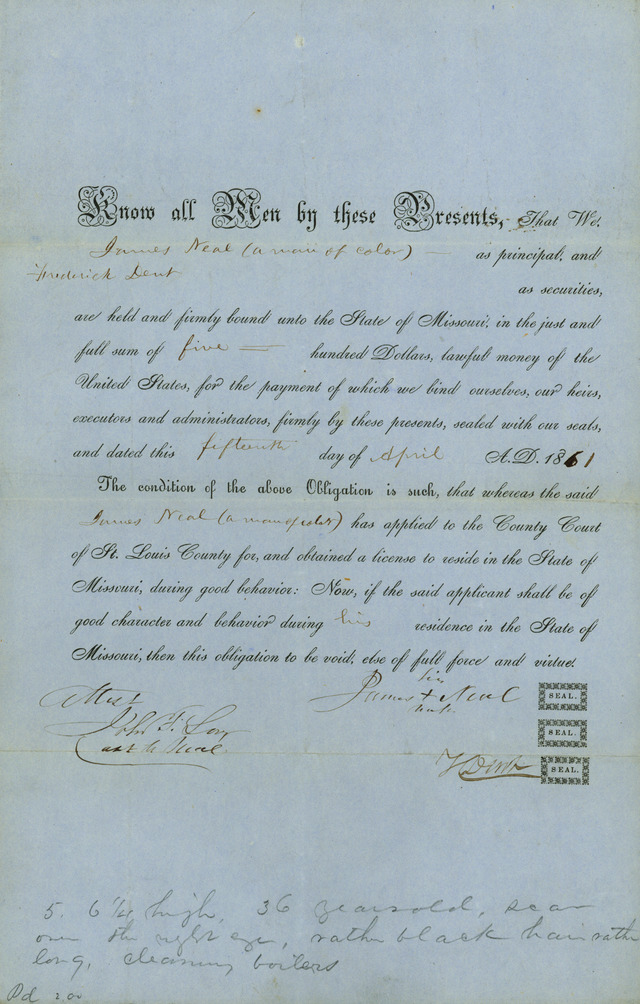 Know all Men by these Presents, That We,
James Neal (a man of color) — as principal, and
Frederick Dent
as securities,
are held and firmly bound unto the State of Missouri, in the just and
full sum of five — hundred Dollars, lawful money of the
United States, for the payment of which we bind ourselves, our heirs,
executors and administrators, firmly by these presents, sealed with our seals,
and dated this fifteenth day of April A.D. 1861
The condition of the above Obligation is such, that whereas the said
James Neal (a man of color) has applied to the County Court
of St. Louis County for, and obtained a license to reside in the State of
Missouri, during good behavior: Now, if the said applicant shall be of
good character and behavior during his residence in the State of
Missouri, then this obligation to be void; else of full force and virtue.
his
Attest James + Neal SEAL.
mark
John F. SEAL.
as to Neal
F Dent SEAL.
5. 6 1/4 high, 36 years old, scar
over the right eye, rather black hair rather
long, cleaning boilers
Pd 2.00